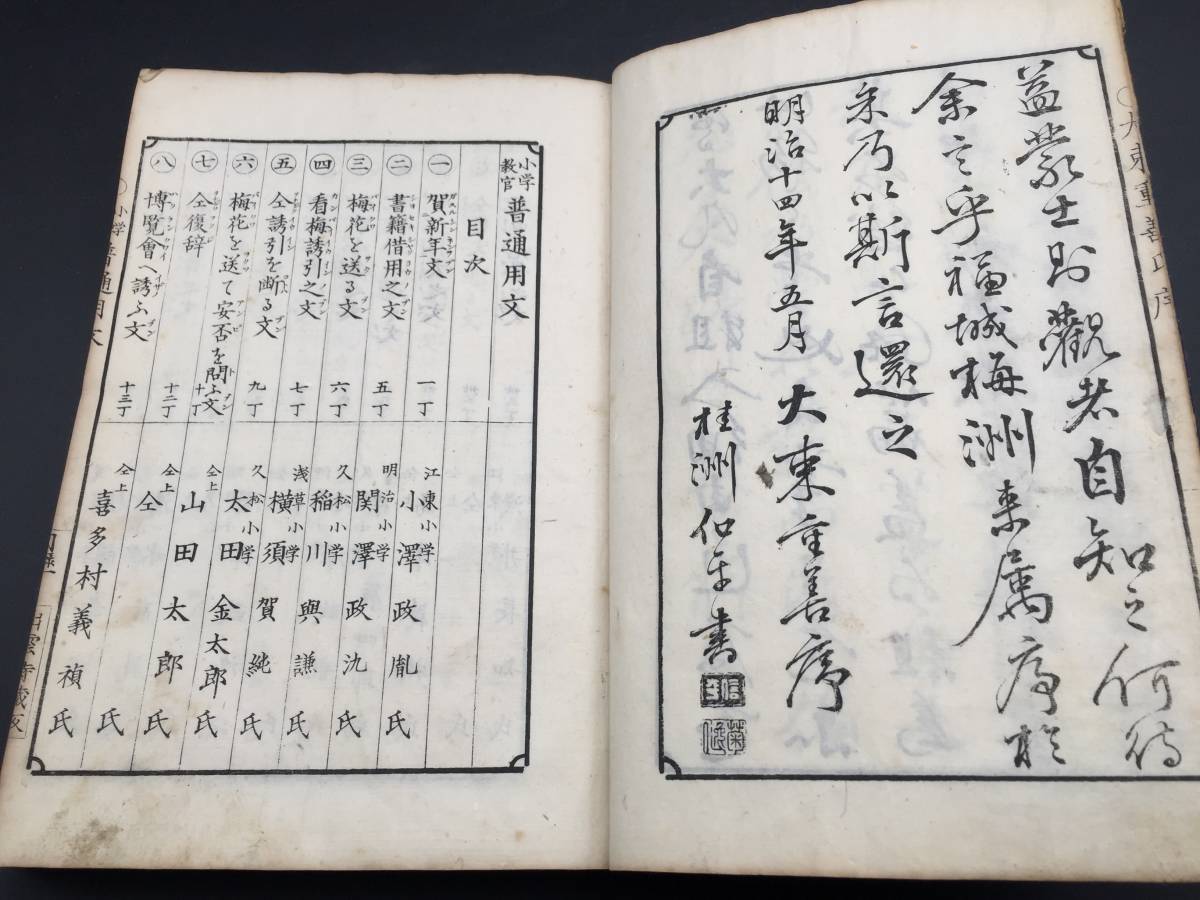 益蒙士則觀者自知之何待
余言乎福城梅洲来属序於
余乃以斯言還之
明治十四年五月 大東重善序
桂洲 書
大東重善氏序
小学教官 普通用文
目次
一 賀新年文 一丁 江東小学 小澤政胤氏
二 書籍借用之文 五丁 明治小学 関澤政氿氏
三 梅花を送る文 六丁 久松小学 稲川與謙氏
四 看梅誘引之文 七丁 浅草小学 横須賀純氏
五 仝誘引を断る文 九丁 久松小学 太田金太郎氏
六 梅花を送て安否を問ふ文 十丁 仝上 山田太郎氏
七 仝復辞 十二丁 仝上 仝氏
八 博覧會へ誘ふ文 十三丁 仝上 喜多村義禎氏
小学普通用文